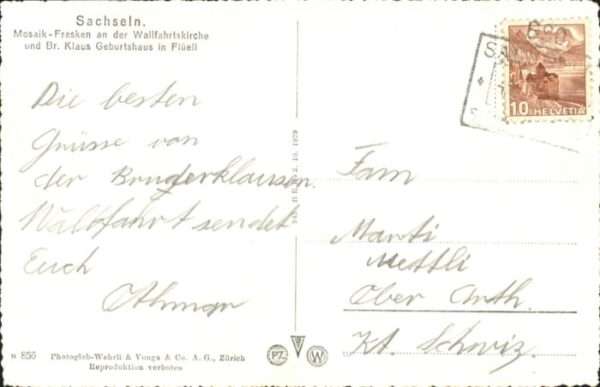 Sachseln.
Mosaik-Fresken an der Wallfahrtskirche
und Br. Klaus Geburtshaus in Flüeli
10 HELVETIA
Die besten
Grüsse von
der Bruderklausen
Wallfahrt sendet
Euch
Fam
Marti
Mettli
Ober Arth.
Kt. Schwiz.
n 856 Photoglob-Wehrli & Vouga & Co. A. G., Zürich
Reproduktion verboten
PZ
W